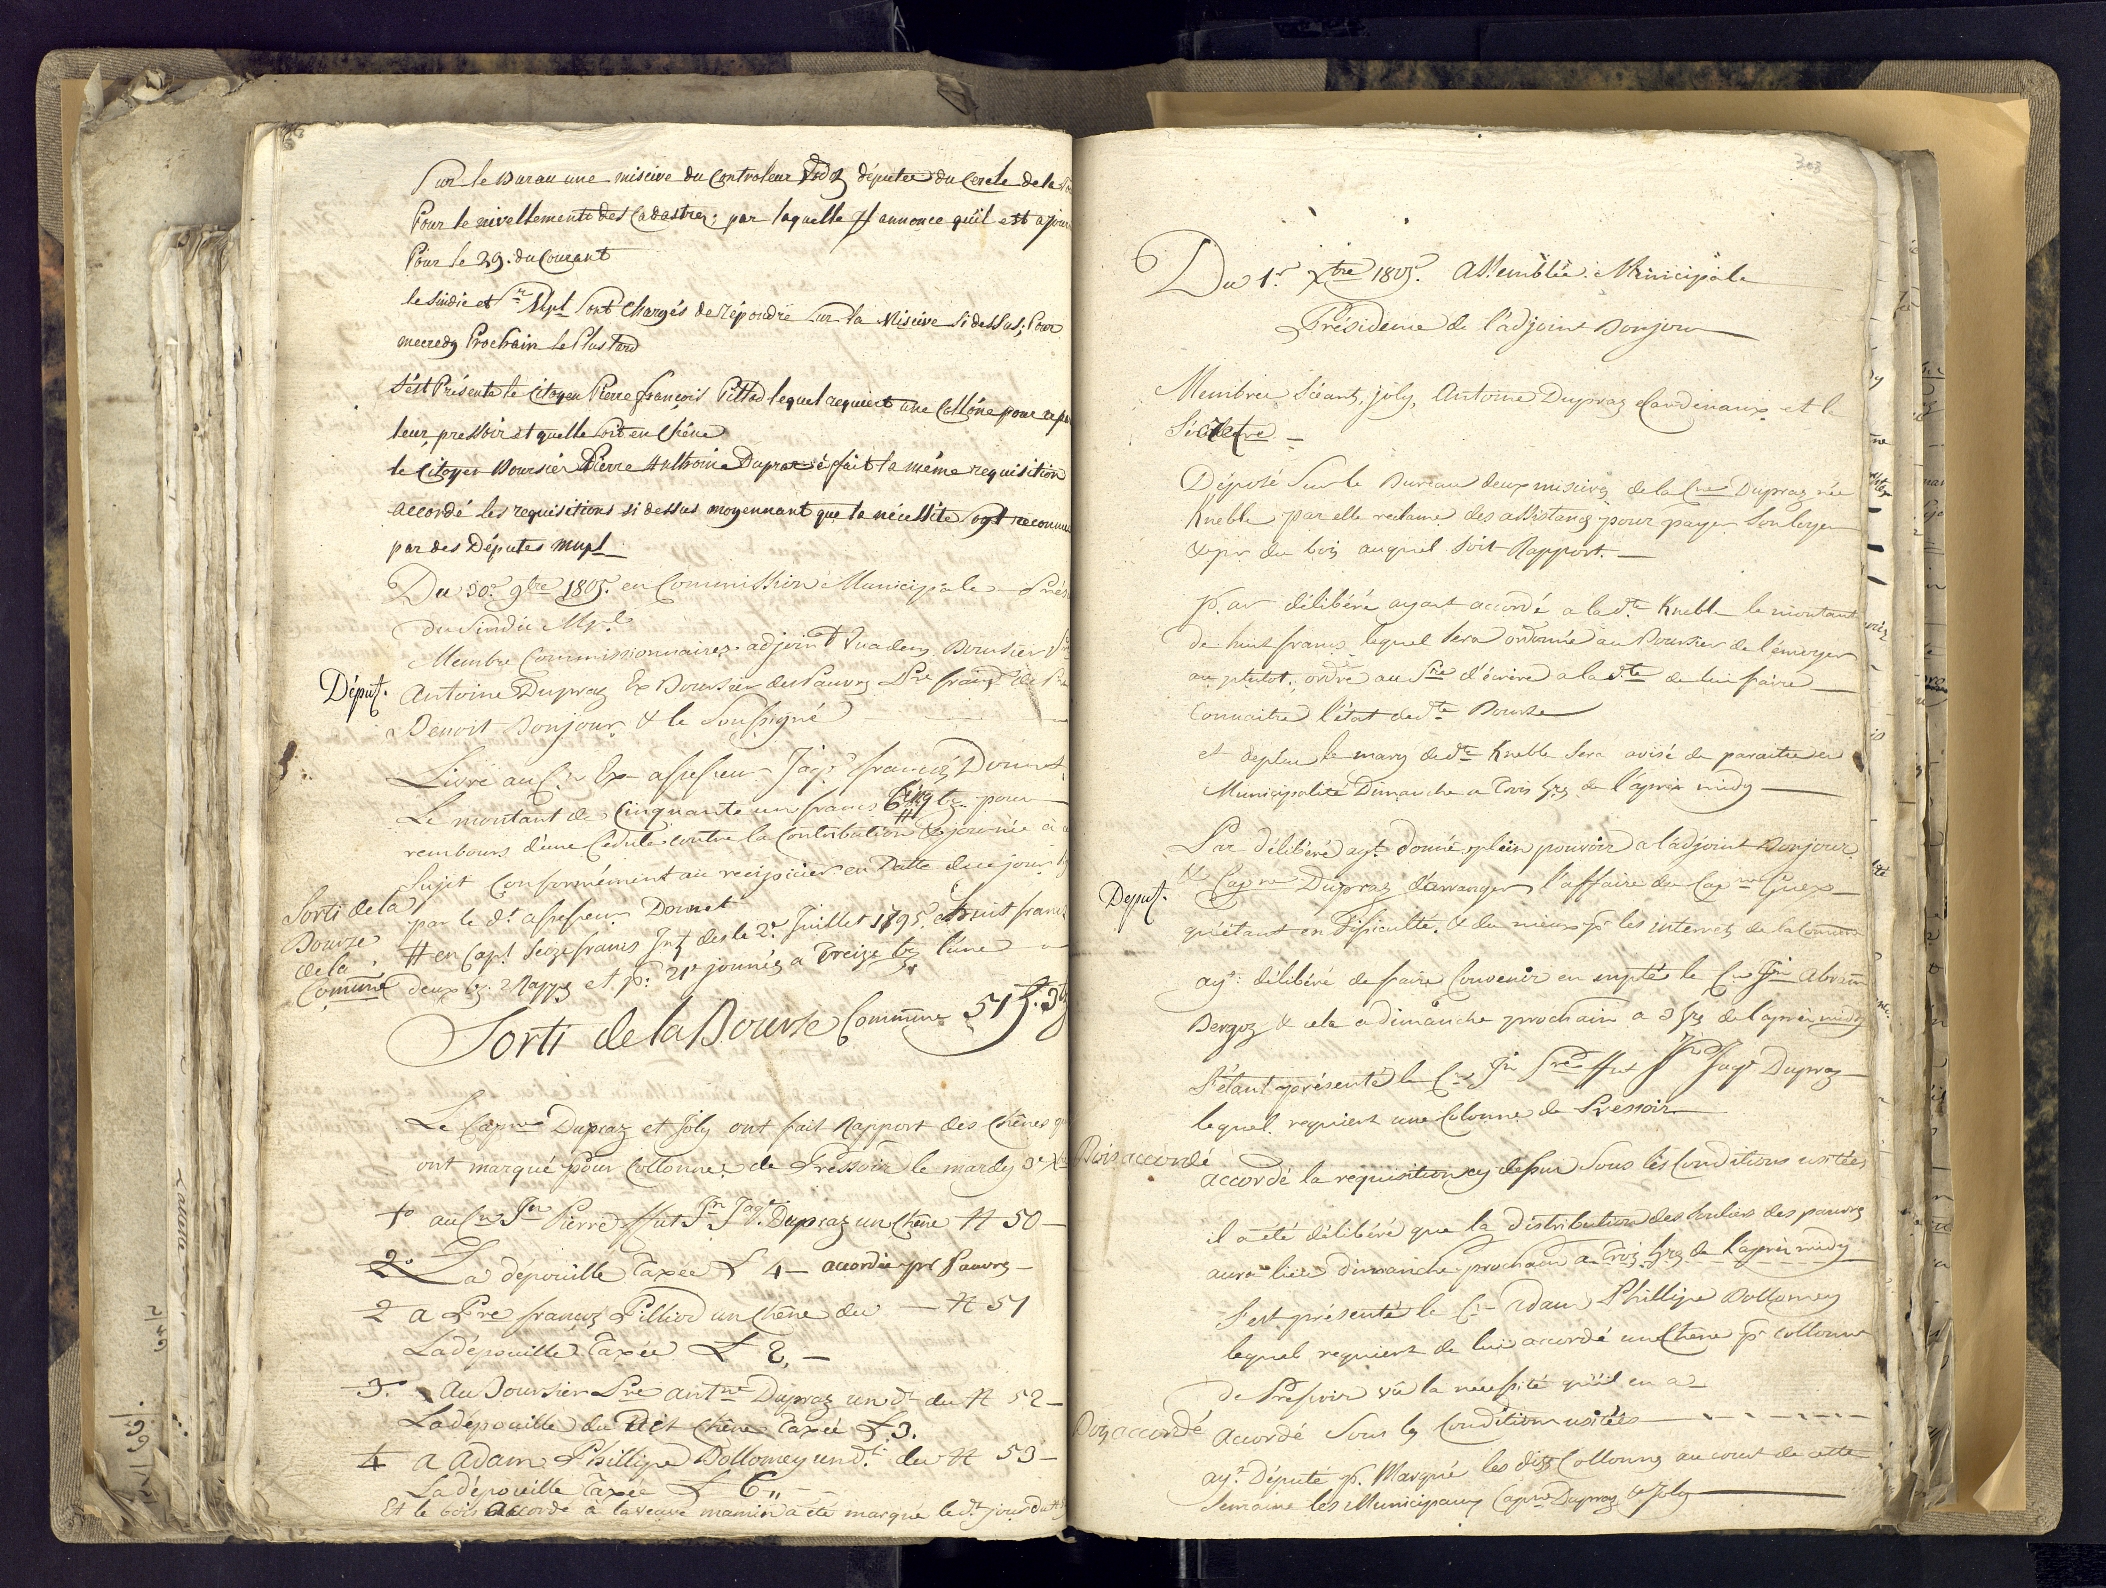 Sur le Bureau une miscive du Controleur députée du Cercle de la
Pour le nivellement des Cadastres; par laquelle Il annonce qu'il est ajour
Pour le 29. du Courant
le Sindic et Mpl sont Chargés de répondre sur la Miscive Sidessus; Pour
mecredy Prochain le Plus tard
s'est Présenté le Citoyen Pierre françois Pilliod lequel requiert une Collône pour
leur pressoir et quelle soit en Chêne
le Citoyen Boursier Pierre Anthoine Dupraz à fait la même requisition
accordé les requisitions sidessus moyennant que la nécessité soyt reconnue
par des Députés Mupl
Du 30e 9bre 1805. en Commission Municipale
Du Sindic Mpl
Membre Commissionnaires adjoint Vuadens Boursier
Déput. Antoine Dupraz Ex Boursier des Pauvres Pre franç
Benoit Bonjour & le Soussigné
Livré au Cn Ex assesseur Jaqs françois Donnet
Le montant de Cinquante un francs Cinq bz pour
rembours d'une Cédule contre la Contribution & journée
Sujet Conformément au recipicier en Datte de ce jour
par le dt assesseur Donnet
Sorti de la Bourse de la Comune
# en Capl Seize francs Int des le 2e Juillet 1795 huit francs
deux bz Rapps et pr 21e journées a treize bz l'une
Sorti de la Bourse Commune 51 f. 5 bz
Le Capne Dupraz et Joly ont fait Rapport des Chênes qu
ont marqué pour Collonnes de Pressoir le mardy 3e Xbre
1o au Cn Jn Pierre ffut Jn Jaqs Dupraz un Chêne # 50 —
2o La dépouille Taxée L 4 — accordée pr Pauvres —
2 a Pre françois Pilliod un Chêne du — # 51
La dépouille Taxée L 2, —
3. Au Boursier Pre antne Dupraz un dt du # 52 —
La dépouille du Dit Chêne Taxée L 3.
4 a Adam Phillipe Dollomey un dt du # 53 —
La dépouille Taxée L 6 „ —
Et le bois accordé à la veuve mamin a été marque le dt jour du #
303
Du 1er Xbre 1805. Assemblée Municipale
Présidence de l'adjoint Bonjour
Membres Séants, joly, Antoine Dupraz Cardinaux et le
Sécretre —
Déposé Sur le Bureau deux miscives de la Cne Dupraz née
Kneble par elle reclame des assistances pour payer son loyer
& pr du bois auquel soit Rapport. —
p. av délibéré ayant accordé a la dte Knebl le montant
de huit francs lequel sera ordonné au Boursier de l'envoyer
au plutot, ordre au Sre d'écrire a la dte de lui faire —
Connaitre l'état de dte Bourse
et deplus le mary de dte Kneble sera avisé de paraitre en
Municipalité Dimanche a trois hrs de l'après midy —
Par délibéré ayt donné plein pouvoir a l'adjoint Bonjour
Déput. & Capne Dupraz d'arranger l'affaire du Capne Guex —
qu'étant en Dificulté. & du mieux pr les interrets de la Comune
ayt délibéré de faire Convenir en mplté le Cn Jn Abram
Bergoz & cela a dimanche prochain a 3 hrs de l'après midy
S'étant présenté le Cn Jn Pre ffut Jn Jaqs Dupraz —
lequel requiert une Colonne de Pressoir —
Bois accordé accordé la requisition cy dessus sous les Conditions usitées
il a été délibéré que la distribution des souliers des pauvres
aura lieu dimanche prochain a trois hrs de l'après midy
S'est présenté le Cn Adam Phillipe Dollomey
lequel requiert de lui accordé un Chêne pr Collonne
de Pressoir vû la nécessité qu'il en a —
Bois accordé Accordé Sous les Conditions usitées —
ayt Député pr Marqué les dites Collonnes au court de cette
Semaine les Municipaux Capne Dupraz & Joly —